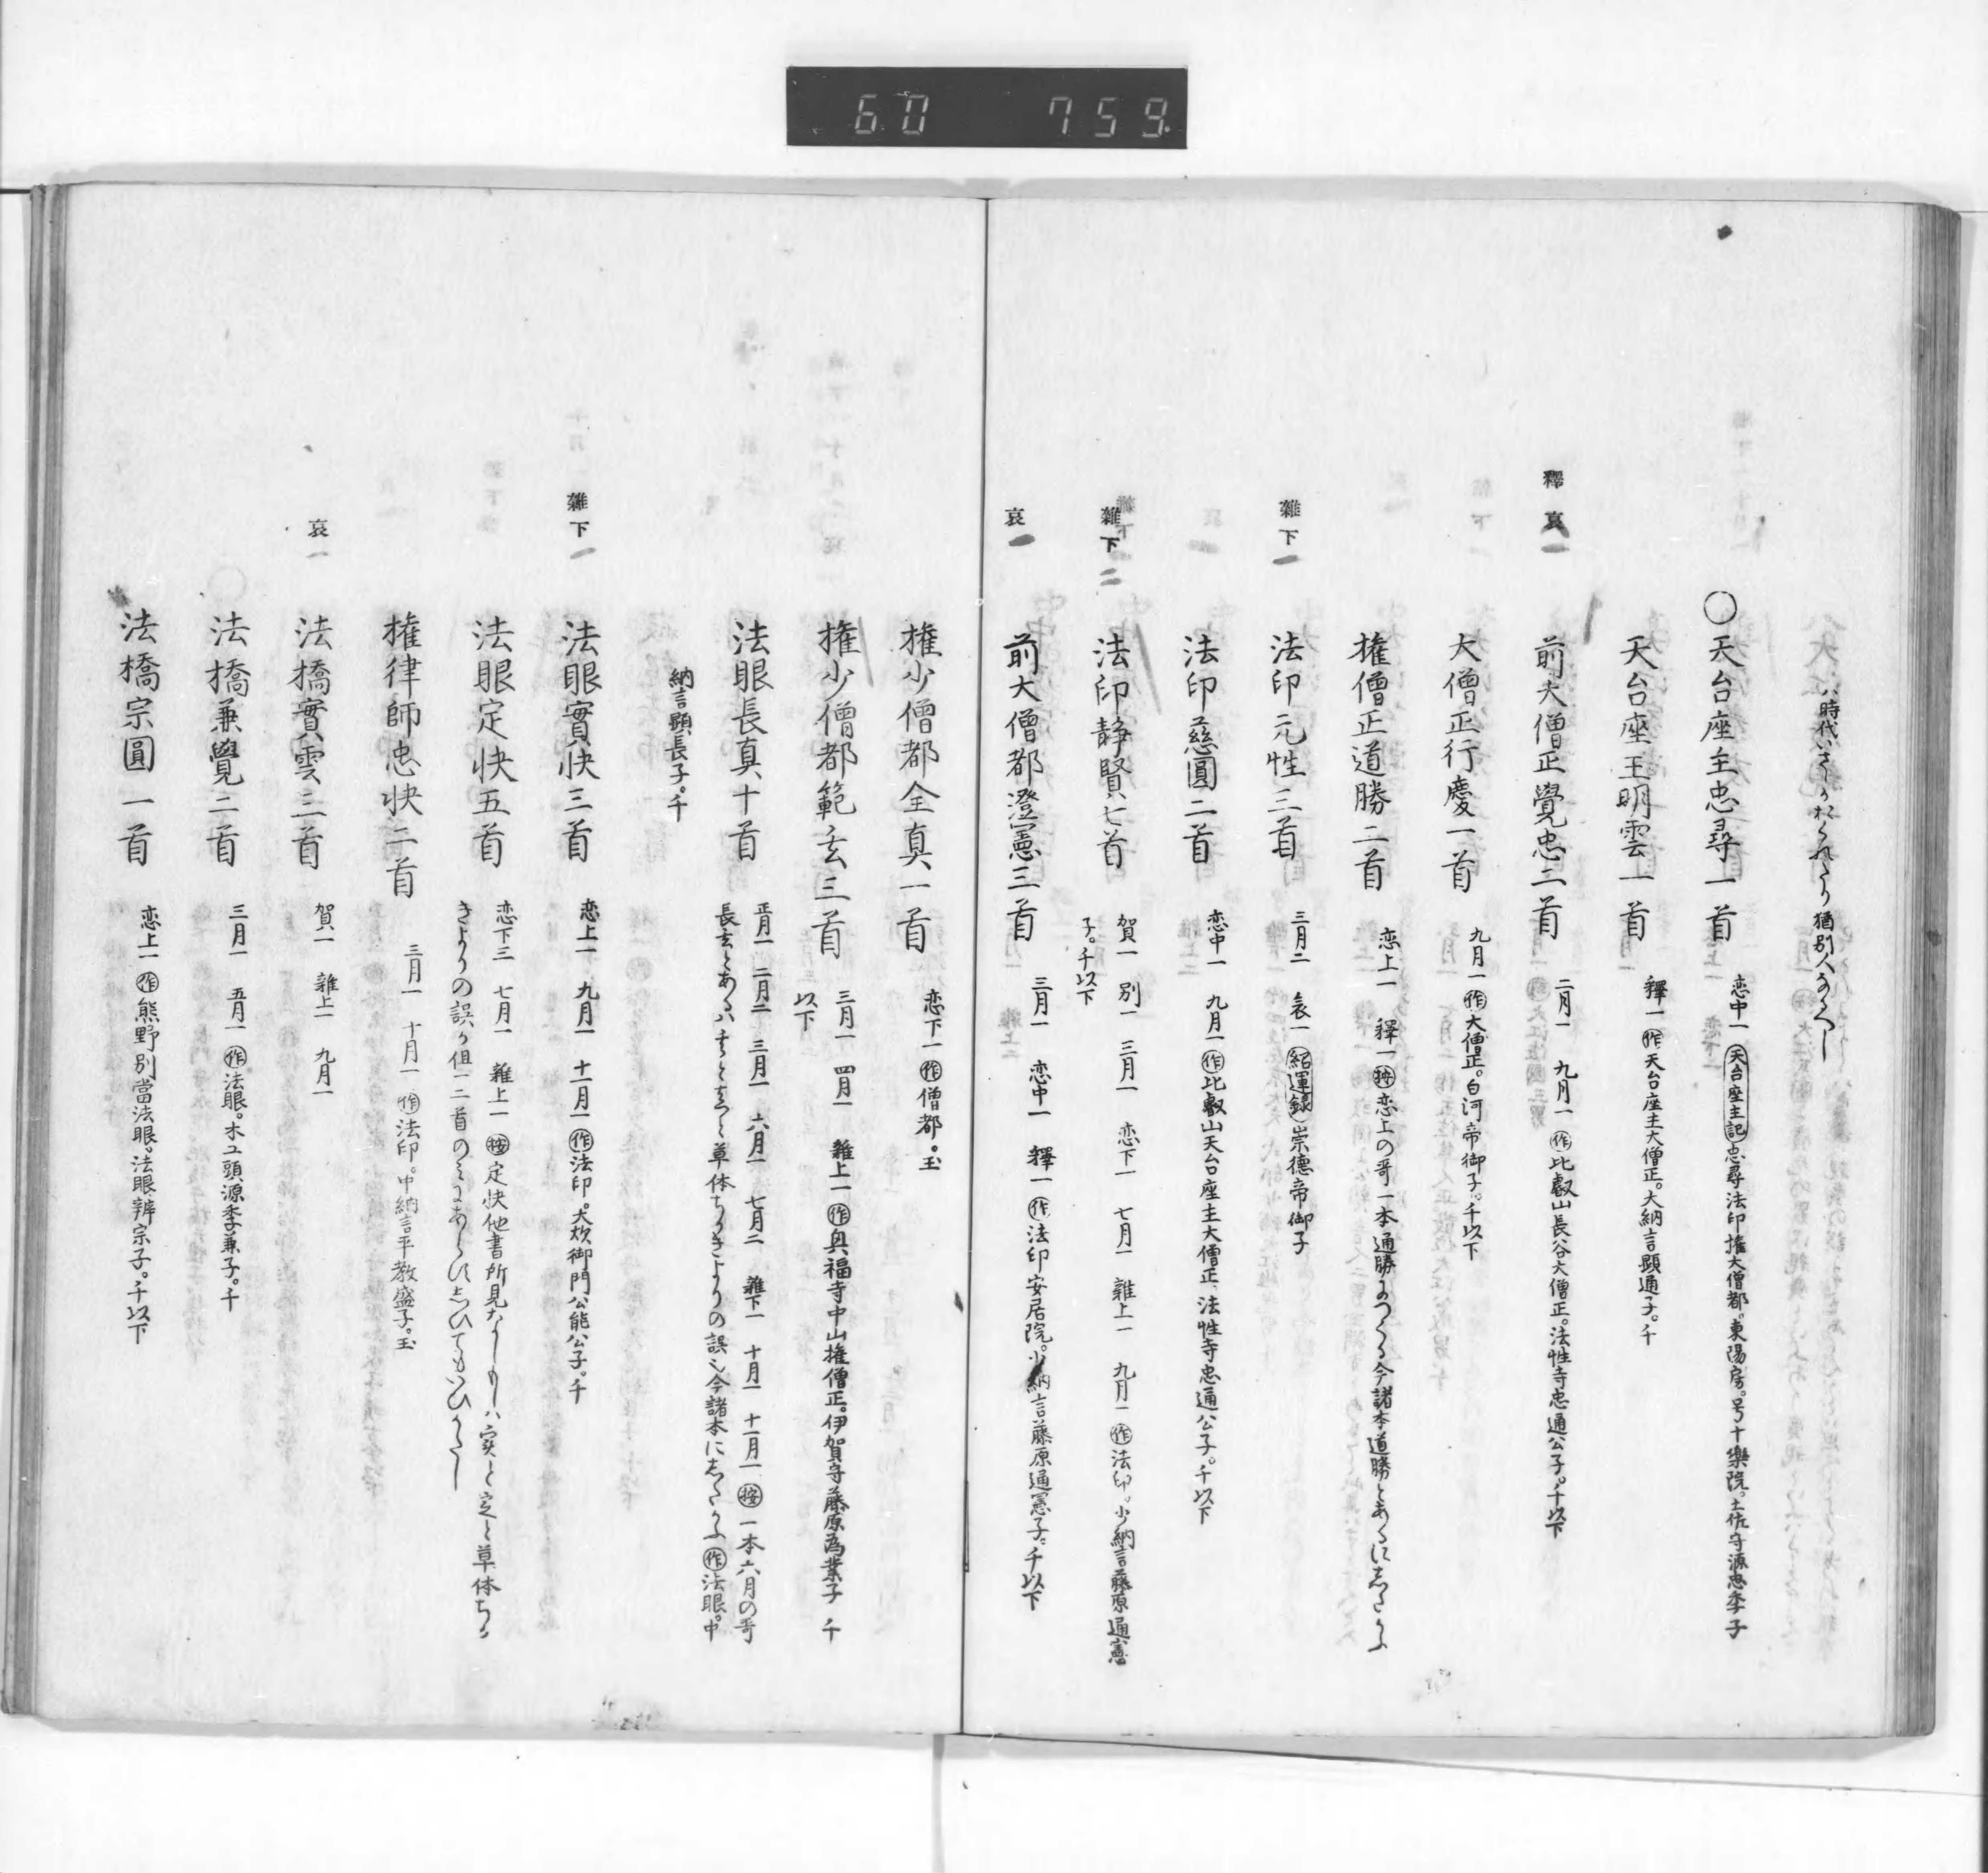 60 759
ハ時代いさゝかおくれたり 猶別人なるへし
〇天台座主忠尋一首 恋中一 天台座主記 忠尋法印権大僧都。東陽房。号十樂院。土佐守源忠季子
天台座主明雲一首 釋一 作 天台座主大僧正。大納言顕通子。千
釋 哀一
前大僧正覺忠二首 二月一 九月一 作 比叡山長谷大僧正。法性寺忠通公子。千以下
大僧正行慶一首 九月一 作 大僧正。白河帝御子。千以下
権僧正道勝二首 恋上一 釋一 按 恋上の哥一本通勝につくる今諸本道勝とあるにしたかふ
雜下一
法印元性三首 三月二 哀一 紹運録 崇徳帝御子
法印慈圓二首 恋中一 九月一 作 比叡山天台座主大僧正、法性寺忠通公子。千以下
雜下二
法印静賢七首 賀一 別一 三月一 恋下一 七月一 雜上一 九月一 作 法印。少納言藤原通憲
子。千以下
哀一
前大僧都澄憲三首 三月一 恋中一 釋一 作 法印安居院。少納言藤原通憲子。千以下
権少僧都全真一首 恋下一 作 僧都。玉
権少僧都範玄三首 三月一 四月一 雜上一 作 興福寺中山権僧正。伊賀守藤原為業子 千
以下
法眼長真十首 正月一 二月二 三月一 六月一 七月二 雜下一 十月一 十一月一 按 一本六月の哥
長玄とあるハ玄と真と草体ちかきよりの誤也今諸本にしたかふ 作 法眼。中
納言顕長子。千
雜下一
法眼實快三首 恋上一 九月一 十一月一 作 法印。大炊御門公能公子。千
法眼定快五首 恋下三 七月一 雜上一 按 定快他書所見なしもしハ実と定と草体ちか
きよりの誤か但一二首のみにあらねしひてもいひかたし
権律師忠快二首 三月一 十月一 作 法印。中納言平教盛子。玉
哀一
法橋實雲三首 賀一 雜上一 九月一
法橋兼覺二首 三月一 五月一 作 法眼。木工頭源季兼子。千
法橋宗圓一首 恋上一 作 熊野別當法眼。法眼辨宗子。千以下